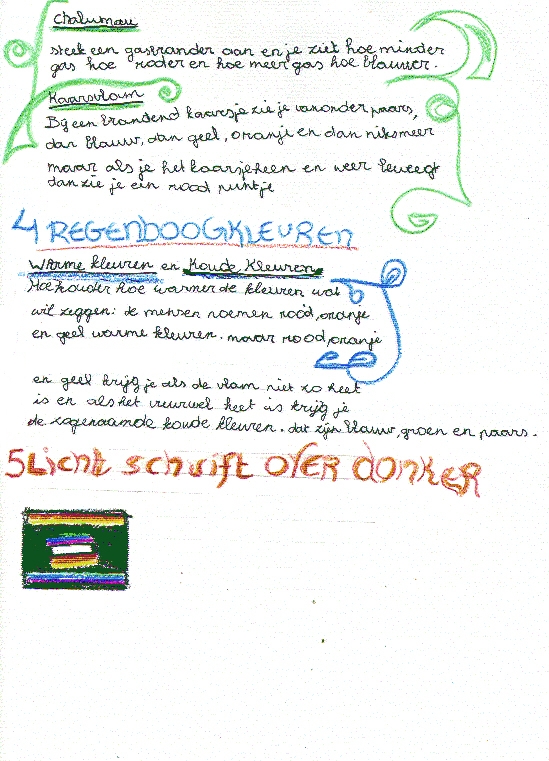 Chalumau
steek een gasbrander aan en je ziet hoe minder
gas hoe roder en hoe meer gas hoe blauwer.
Kaarsvlam
Bij een brandend kaarsje zie je vanonder paars,
dan blauw, dan geel, oranje en dan niks meer
maar als je het kaarsje heen en weer beweegt
dan zie je ein rood puntje
4 REGENBOOGKLEUREN
Warme kleuren en Koude Kleuren
Hoe kouder hoe warmer de kleuren wat
wil zeggen: de mensen noemen rood, oranje
en geel warme kleuren. maar rood, oranje
en geel krijg je als de vlam niet zo heet
is en als het vuur wel heet is krijg je
de zogenaamde koude kleuren. dat zijn blauw, groen en paars.
5 Licht schrift over donker